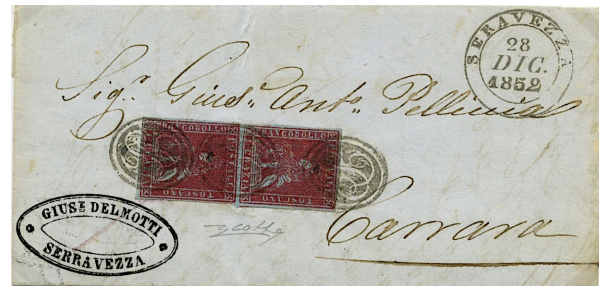 SERAVEZZA
28
DIC.
1852
Sig.r Giuse. Anto. Pellicia
FRANCOBOLLO
FRANCOBOLLO
TOSCANO
TOSCANO
GIUSE DELMOTTI
SERRAVEZZA
Carrara